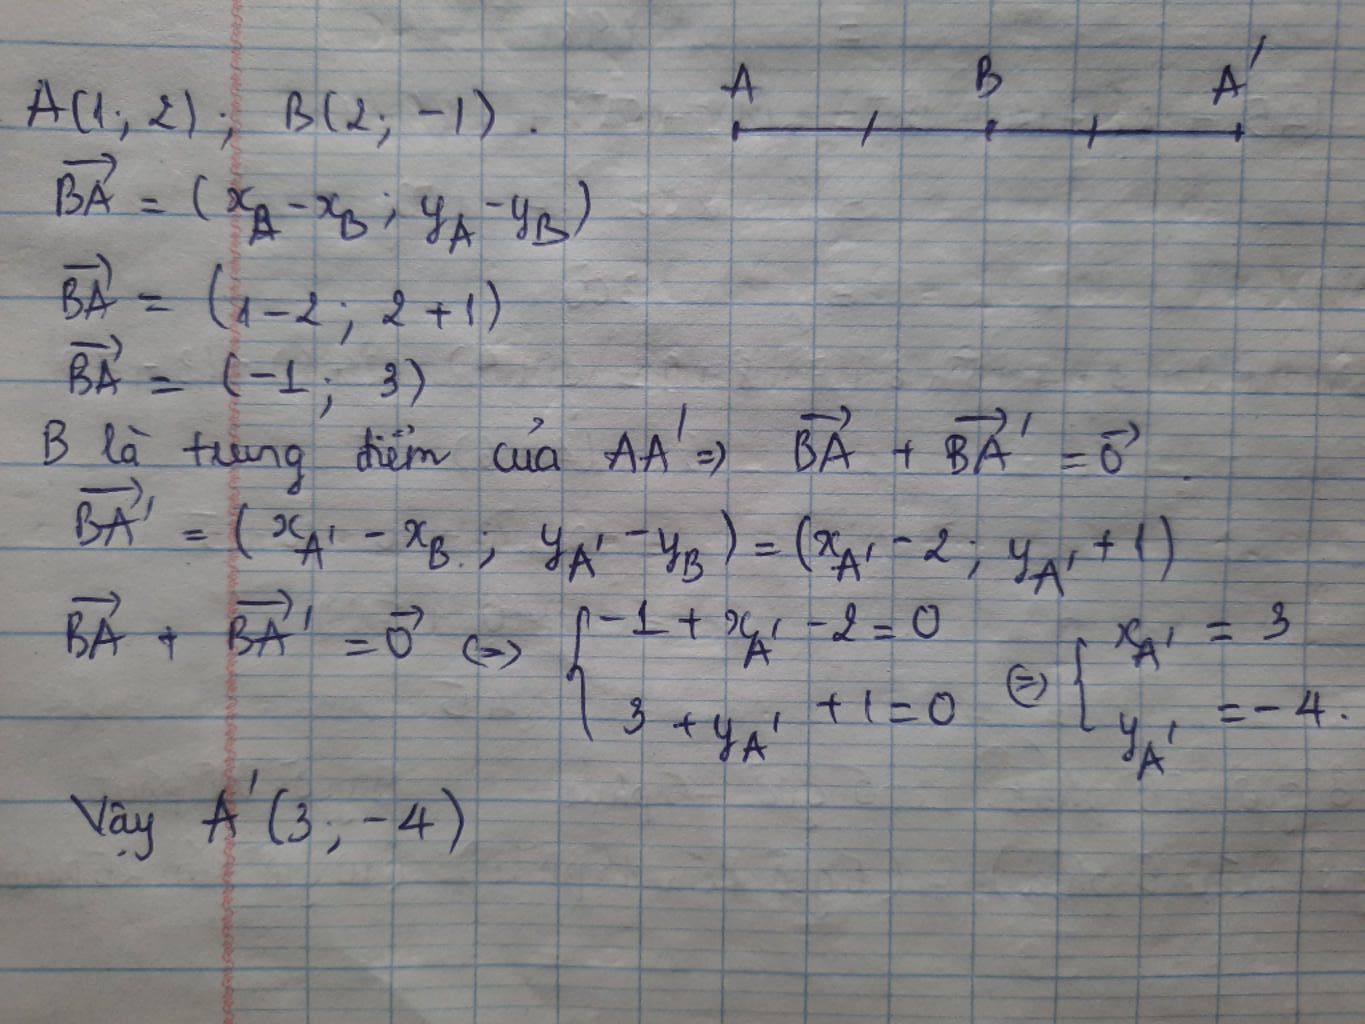 A(1; 2); B(2; -1).
A B A'
$\overrightarrow{BA} = (x_A - x_B; y_A - y_B)$
$\overrightarrow{BA} = (1-2; 2+1)$
$\overrightarrow{BA} = (-1; 3)$
B là trung điểm của AA' => $\overrightarrow{BA} + \overrightarrow{BA'} = \vec{0}$.
$\overrightarrow{BA'} = (x_{A'} - x_B; y_{A'} - y_B) = (x_{A'} - 2; y_{A'} + 1)$
$\overrightarrow{BA} + \overrightarrow{BA'} = \vec{0} \Leftrightarrow \begin{cases} -1 + x_{A'} - 2 = 0 \\ 3 + y_{A'} + 1 = 0 \end{cases} \Leftrightarrow \begin{cases} x_{A'} = 3 \\ y_{A'} = -4. \end{cases}$
Vậy A'(3; -4)